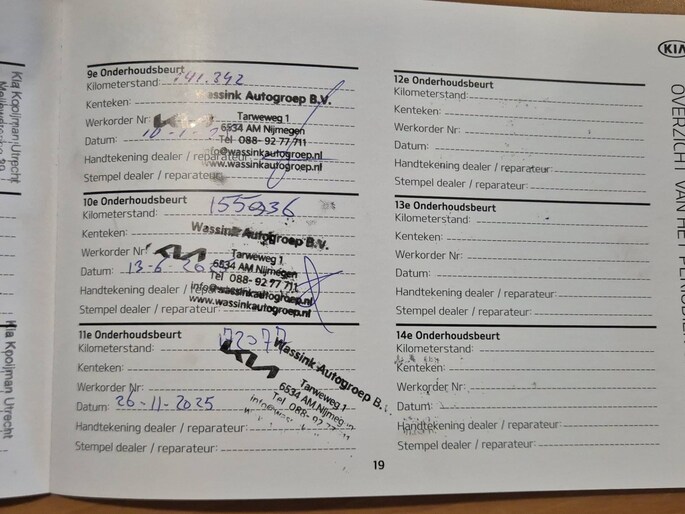 Kia Kooijman Utrecht
Kia Kooijman Utrecht
9e Onderhoudsbeurt
Kilometerstand: 141.342
Kenteken:
Wassink Autogroep B.V.
Werkorder Nr:
KIA
Tarweweg 1
6534 AM Nijmegen
Datum:
Tel 088- 92 77 711
Handtekening dealer / reparateur:
info@wassinkautogroep.nl
www.wassinkautogroep.nl
Stempel dealer / reparateur:
10e Onderhoudsbeurt
Kilometerstand: 155936
Kenteken:
Wassink Autogroep B.V.
Werkorder Nr:
KIA
Tarweweg 1
6534 AM Nijmegen
Datum: 13-6-
Tel 088- 92 77 711
Handtekening dealer /
info@wassinkautogroep.nl
www.wassinkautogroep.nl
Stempel dealer / reparateur:
11e Onderhoudsbeurt
Kilometerstand: 172077
KIA
Wassink Autogroep B.
Kenteken:
Tarweweg 1
Werkorder Nr:
6534 AM Nijmegen
Datum: 26-11-2025
Tel 088- 92
Handtekening dealer / reparateur:
Stempel dealer / reparateur:
12e Onderhoudsbeurt
Kilometerstand:
Kenteken:
Werkorder Nr:
Datum:
Handtekening dealer / reparateur:
Stempel dealer / reparateur:
13e Onderhoudsbeurt
Kilometerstand:
Kenteken:
Werkorder Nr:
Datum:
Handtekening dealer / reparateur:
Stempel dealer / reparateur:
14e Onderhoudsbeurt
Kilometerstand:
Kenteken:
Werkorder Nr:
Datum:
Handtekening dealer / reparateur:
Stempel dealer / reparateur:
19
KIA
OVERZICHT VAN HET